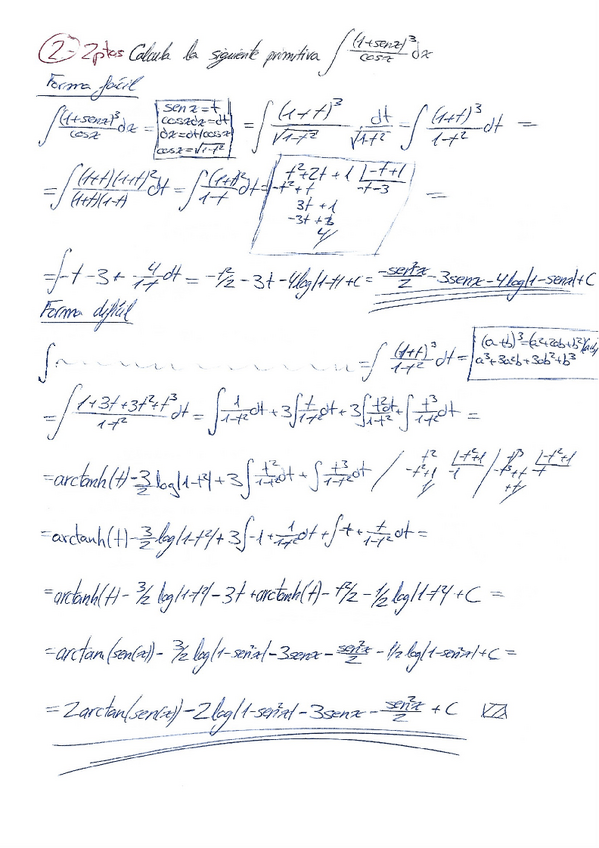 2- 2ptos Calcula la siguiente primitiva ∫ (1+senx)³/cosx dx
Forma fácil
∫ (1+senx)³/cosx dx = [senx=t cosxdx=dt dx=dt/cosx cosx=√1-t²] = ∫ (1+t)³/√1-t² dt/√1-t² = ∫ (1+t)³/1-t² dt =
= ∫ (1+t)(1+t)²/(1+t)(1-t) dt = ∫ (1+t)²/1-t dt = [t²+2t+1 |-t+1 -t²+t -t-3 3t+1 -3t+3 4] =
= ∫ -t-3+ 4/1-t dt = -t²/2 -3t-4log|1-t|+C = -sen²x/2 -3senx-4log|1-senx|+C
Forma difícil
∫ = ∫ (1+t)³/1-t² dt = [(a+b)³=(a²+2ab+b²)(a+b) a³+3a²b+3ab²+b³]
= ∫ 1+3t+3t²+t³/1-t² dt = ∫ 1/1-t² dt + 3∫ t/1-t² dt + 3∫ t²/1-t² dt + ∫ t³/1-t² dt =
= arctanh(t)- 3/2 log|1-t²| + 3∫ t²/1-t² dt + ∫ t³/1-t² dt / t² |-t²+1 -t²+1 -1 1 / t³ |-t²+1 -t³+t -t +t
= arctanh(t)- 3/2 log|1-t²| + 3∫ -1+ 1/1-t² dt + ∫ -t+ t/1-t² dt =
= arctanh(t)- 3/2 log|1-t²| -3t +arctanh(t)- t²/2 - 1/2 log|1-t²| +C =
= arctan(sen(x))- 3/2 log|1-sen²x|-3senx- sen²x/2 - 1/2 log|1-sen²x|+C =
= 2arctan(sen(x))-2log|1-sen²x|-3senx- sen²x/2 +C